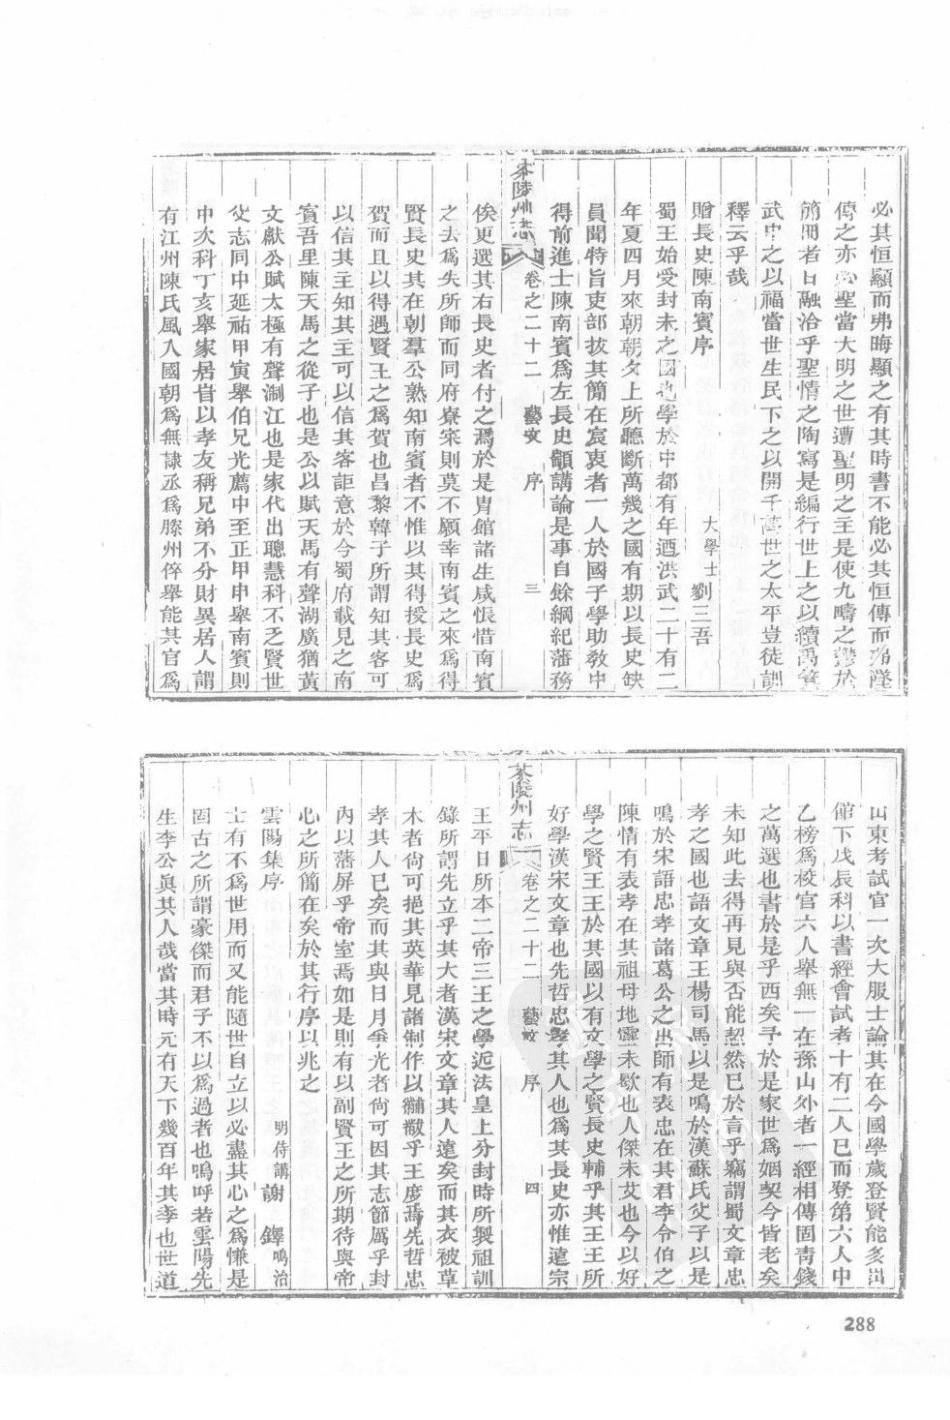 必其恒顯而弗晦顯之有其時書不能必其恒傳而弗墜
傳之亦惟聖當大明之世遭聖明之主是使九疇之鬱於
簡冊者日融洽乎聖情之陶寫是編行世上之以續禹箕
武中之以福當世生民下之以開千萬世之太平豈徒訓
釋云乎哉
贈長史陳南賓序
大學士劉三吾
蜀王始受封未之國也學於中都有年迺洪武二十有二
年夏四月來朝朝夕上所聽斷萬幾之國有期以長史缺
員聞特旨吏部拔其簡在宸衷者一人於國子學助教中
得前進士陳南賓爲左長史顓講論是事自餘綱紀藩務
茶陵州志
卷之二十二
藝文
序
三
俟更選其右長史者付之焉於是胄館諸生咸悵惜南賓
之去爲失所師而同府寮寀則莫不願幸南賓之來爲得
賢長史其在朝羣公熟知南賓者不惟以其得授長史爲
賀而且以得遇賢王之爲賀也昌黎韓子所謂知其客可
以信其主知其主可以信其客詎意於今蜀府載見之南
賓吾里陳天馬之從子也是公以賦天馬有聲湖廣猶黃
文獻公賦太極有聲淛江也是家代出聰慧科不乏賢世
父志同中延祐甲寅舉伯兄光薦中至正甲申舉南賓則
中次科丁亥舉家居皆以孝友稱兄弟不分財異居人謂
有江州陳氏風入國朝爲無隷丞爲滕州倅舉能其官爲
山東考試官一次大服士論其在今國學歲登賢能多出
館下戊辰科以書經會試者十有二人已而登第六人中
乙榜爲校官六人舉無一在孫山外者一經相傳固靑錢
之萬選也書於是乎西矣予於是家世爲姻契今皆老矣
未知此去得再見與否能恝然已於言乎竊謂蜀文章忠
孝之國也語文章王楊司馬以是鳴於漢蘇氏父子以是
鳴於宋語忠孝諸葛公之出師有表忠在其君李令伯之
陳情有表孝在其祖母地靈未歇也人傑未艾也今以好
學之賢王王於其國以有文學之賢長史輔乎其王王所
好學漢宋文章也先哲忠孝其人也爲其長史亦惟遠宗
茶陵州志
卷之二十二
藝文
序
四
王平日所本二帝三王之學近法皇上分封時所製祖訓
錄所謂先立乎其大者漢宋文章其人遠矣而其衣被草
木者尙可挹其英華見諸制作以黼黻乎王度焉先哲忠
孝其人已矣而其與日月爭光者尙可因其志節厲乎封
內以藩屏乎帝室焉如是則有以副賢王之所期待與帝
心之所簡在矣於其行序以兆之
雲陽集序
明侍講謝鐸鳴治
士有不爲世用而又能隨世自立以必盡其心之爲慊是
固古之所謂豪傑而君子不以爲過者也嗚呼若雲陽先
生李公眞其人哉當其時元有天下幾百年其季也世道
288